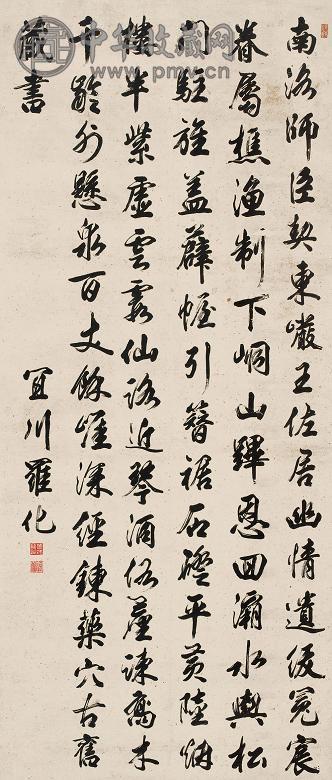 南洛師臣契東巖王佐居幽情遺紱冕宸
眷屬樵漁制下峒山蹕恩回灞水輿松
門駐旌蓋薜幄引簪裾石磴平黃陸烟
樓半紫虛雲霞仙路近琴酒俗塵疎喬木
千齡外懸泉百丈餘崖深經鍊藥穴古舊
藏書
宜川羅化
中华收藏网
www.pmv.cn